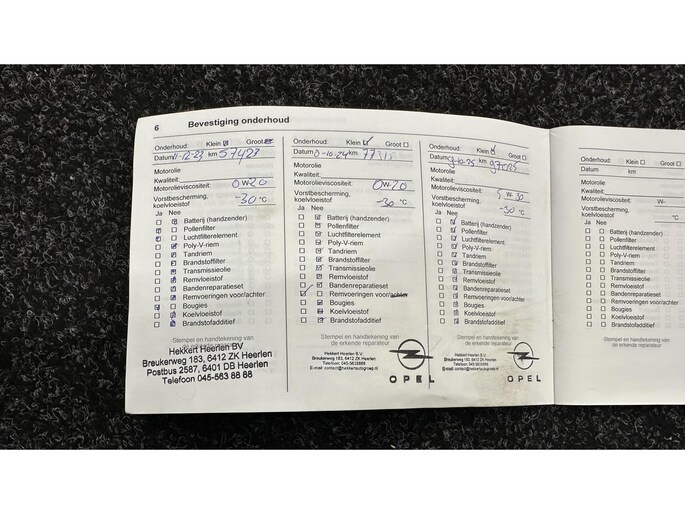 6 Bevestiging onderhoud
Onderhoud: Klein Groot
Datum 11-12-23 km 57423
Motorolie
Kwaliteit:
Motorolieviscositeit: 0W-20
Vorstbescherming,
koelvloeistof -30 °C
Ja Nee
Batterij (handzender)
Pollenfilter
Luchtfilterelement
Poly-V-riem
Tandriem
Brandstoffilter
Transmissieolie
Remvloeistof
Bandenreparatieset
Remvoeringen voor/achter
Bougies
Koelvloeistof
Brandstofadditief
Stempel en handtekening van
de erkende reparateur
Hekkert Heerlen BV
Breukerweg 183, 6412 ZK Heerlen
Postbus 2587, 6401 DB Heerlen
Telefoon 045-563 88 88
Onderhoud: Klein Groot
Datum -10-24 km
Motorolie
Kwaliteit:
Motorolieviscositeit: 0W-20
Vorstbescherming,
koelvloeistof -30 °C
Ja Nee
Batterij (handzender)
Pollenfilter
Luchtfilterelement
Poly-V-riem
Tandriem
Brandstoffilter
Transmissieolie
Remvloeistof
Bandenreparatieset
Remvoeringen voor/achter
Bougies
Koelvloeistof
Brandstofadditief
Stempel en handtekening van
de erkende reparateur
Hekkert Heerlen B.V.
Breukerweg 183, 6412 ZK Heerlen
Telefoon: 045-5638888
E-mail: contact@hekkertautogroep.nl
OPEL
Onderhoud: Klein Groot
Datum -10-25 km
Motorolie
Kwaliteit:
Motorolieviscositeit: 5W-30
Vorstbescherming,
koelvloeistof -30 °C
Ja Nee
Batterij (handzender)
Pollenfilter
Luchtfilterelement
Poly-V-riem
Tandriem
Brandstoffilter
Transmissieolie
Remvloeistof
Bandenreparatieset
Remvoeringen voor/achter
Bougies
Koelvloeistof
Brandstofadditief
Stempel en handtekening van
de erkende reparateur
Hekkert Heerlen B.V.
Breukerweg 183, 6412 ZK Heerlen
Telefoon: 045-5638888
E-mail: contact@hekkertautogroep.nl
OPEL
Onderhoud: Klein Groot
Datum km
Motorolie
Kwaliteit:
Motorolieviscositeit: W-
Vorstbescherming,
koelvloeistof
Ja Nee
Batterij (handzender)
Pollenfilter
Luchtfilterelement
Poly-V-riem
Tandriem
Brandstoffilter
Transmissieolie
Remvloeistof
Bandenreparatieset
Remvoeringen voor/achter
Bougies
Koelvloeistof
Brandstofadditief
Stempel en handtekening
de erkende reparateur